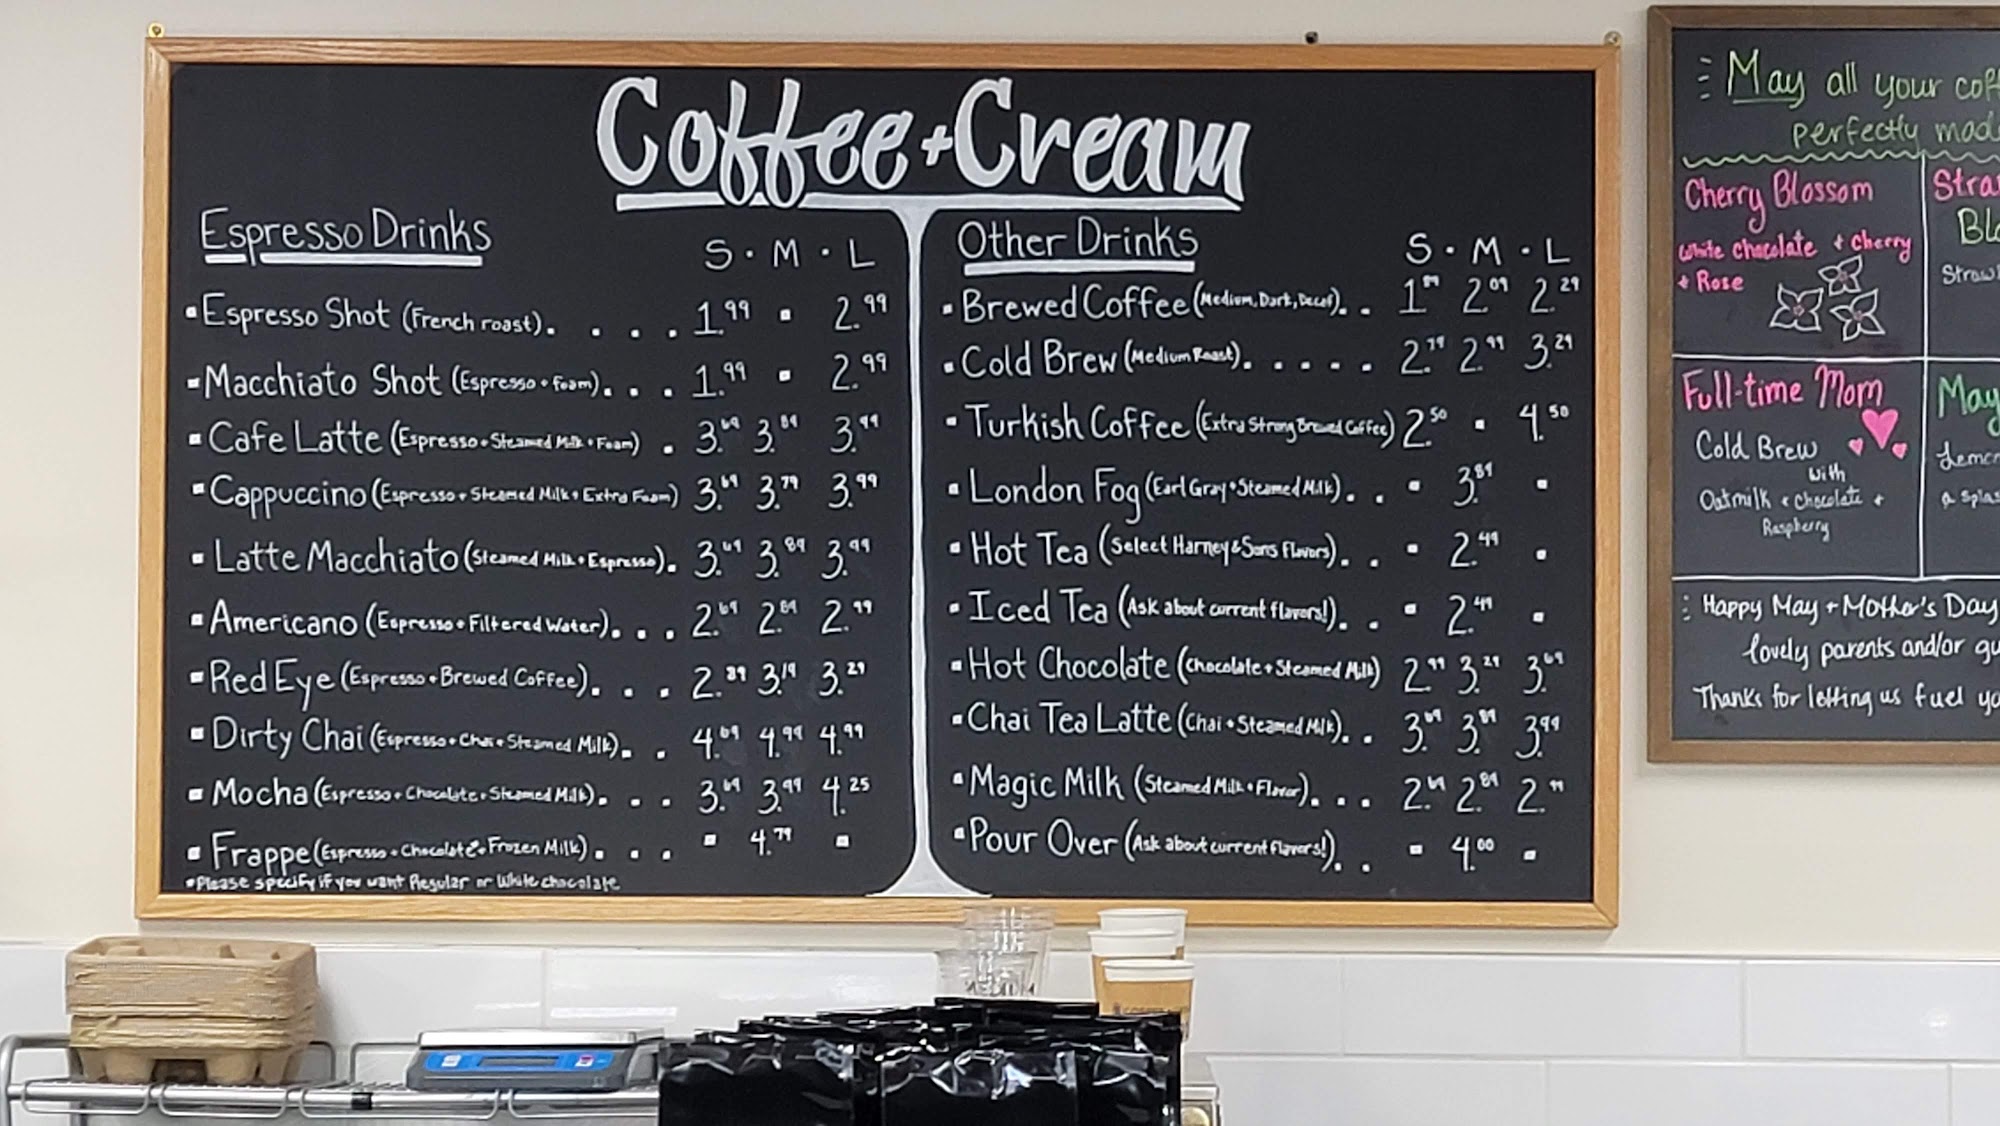 Coffee + Cream
Espresso Drinks S · M · L
Espresso Shot (French roast). . . . 1.99 · 2.99
Macchiato Shot (Espresso + foam). . . 1.99 · 2.99
Cafe Latte (Espresso + Steamed Milk + Foam) . 3.69 3.89 3.99
Cappuccino (Espresso + Steamed Milk + Extra Foam) 3.69 3.79 3.99
Latte Macchiato (Steamed Milk + Espresso). 3.69 3.89 3.99
Americano (Espresso + Filtered Water). . . 2.69 2.89 2.99
Red Eye (Espresso + Brewed Coffee). . . 2.89 3.19 3.29
Dirty Chai (Espresso + Chai + Steamed Milk). . 4.69 4.99 4.99
Mocha (Espresso + Chocolate + Steamed Milk). . . 3.69 3.99 4.25
Frappe (Espresso + Chocolate + Frozen Milk). . . · 4.79 ·
*Please specify if you want Regular or White chocolate
Other Drinks S · M · L
Brewed Coffee (Medium, Dark, Decaf). . 1.89 2.09 2.29
Cold Brew (Medium Roast). . . . . 2.79 2.99 3.29
Turkish Coffee (Extra Strong Brewed Coffee) 2.50 · 4.50
London Fog (Earl Gray + Steamed Milk). . · 3.89 ·
Hot Tea (Select Harney & Sons Flavors). . · 2.49 ·
Iced Tea (Ask about current flavors!). . · 2.49 ·
Hot Chocolate (Chocolate + Steamed Milk) 2.99 3.29 3.69
Chai Tea Latte (Chai + Steamed Milk). . 3.69 3.89 3.99
Magic Milk (Steamed Milk + Flavor). . . 2.69 2.89 2.99
Pour Over (Ask about current flavors!). . · 4.00 ·
May all your coff
perfectly mad
Cherry Blossom
White chocolate + Cherry
+ Rose
Stra
Blo
Straw
Full-time Mom
Cold Brew
with
Oatmilk + Chocolate +
Raspberry
May
Lemon
a splas
Happy May + Mother's Day
lovely parents and/or gu
Thanks for letting us fuel yo
MEDIUM